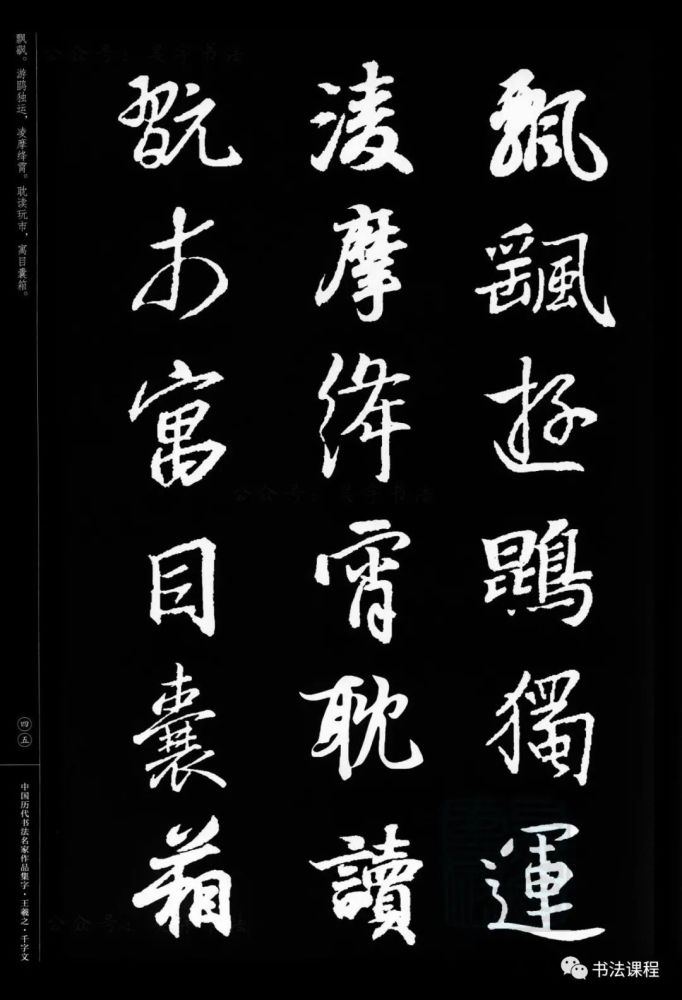 飄颻遊鵾獨運
淩摩絳霄耽讀
翫市寓目囊箱
飘飖。游鹍独运，凌摩绛霄。耽读玩市，寓目囊箱。
四五
中国历代书法名家作品集字·王羲之·千字文
书法课程